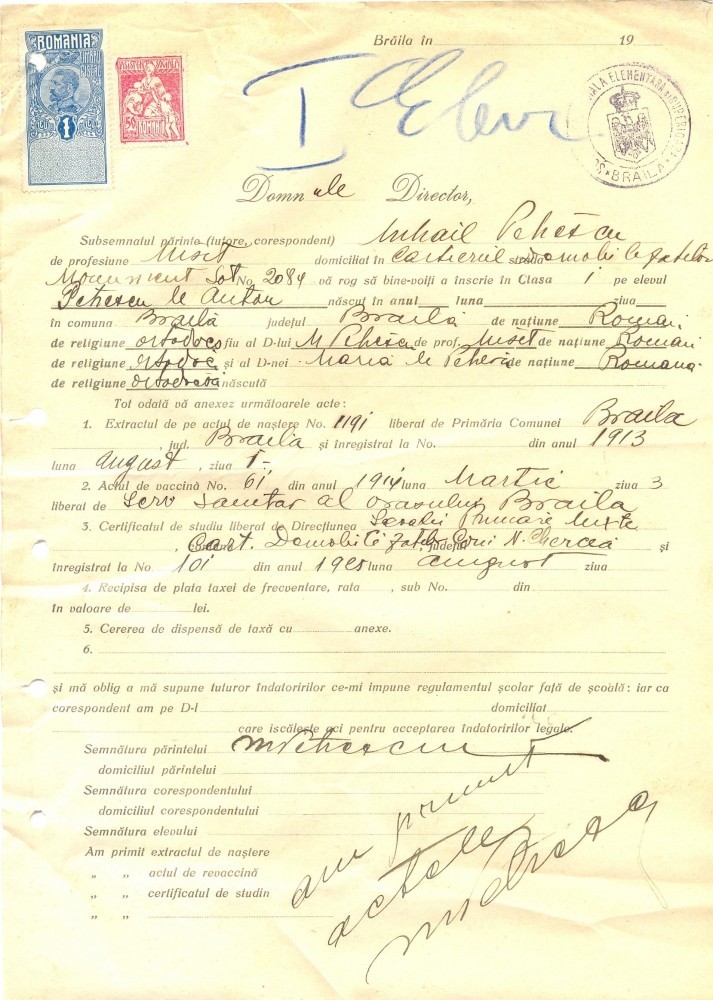 ROMANIA
TIMBRU FISCAL
1
ASISTENTA SOCIALA
50
ROMANIA
Brăila în 19
I Elevi
ȘCOALA ELEMENTARA SI SUPERIOARA
BRAILA
Domnule Director,
Subsemnatul părinte (tutore, corespondent) Mihail Petrescu
de profesiune domiciliat în Cartierul strada Demobilizatilor
Monument Lot No. 2084 vă rog să bine-voiți a înscrie în Clasa I pe elevul
Petrescu Anton născut în anul luna ziua
în comuna Braila județul Braila de națiune Roman
de religiune ortodocs fiu al D-lui M Petrescu de prof. de națiune Roman
de religiune ortodoc și al D-nei Maria M Petrescu de națiune Romana
de religiune ortodocsă născută
Tot odată vă anexez următoarele acte:
1. Extractul de pe actul de naștere No. 1191 liberat de Primăria Comunei Braila
, jud. Braila și înregistrat la No. din anul 1913
luna August , ziua 1
2. Actul de vaccină No. 61 din anul 1914 luna Martie ziua 3
liberat de Serv Sanitar al orasului Braila
3. Certificatul de studiu liberat de Direcțiunea Scoalei Primare Mixte
, comuna Cart. Demobilizatilor , județul și
înregistrat la No. 101 din anul 1925 luna August ziua
4. Recipisa de plata taxei de frecventare, rata , sub No. din
în valoare de lei.
5. Cererea de dispensă de taxă cu anexe.
6.
și mă oblig a mă supune tuturor îndatoririlor ce-mi impune regulamentul școlar față de școală: iar ca
corespondent am pe D-l domiciliat
care iscălește aci pentru acceptarea îndatoririlor legale.
Semnătura părintelui MPetrescu
domiciliul părintelui
Semnătura corespondentului
domiciliul corespondentului
Semnătura elevului
Am primit extractul de naștere
„ „ actul de revaccină
„ „ certificatul de studin
„ „
am primit
actele